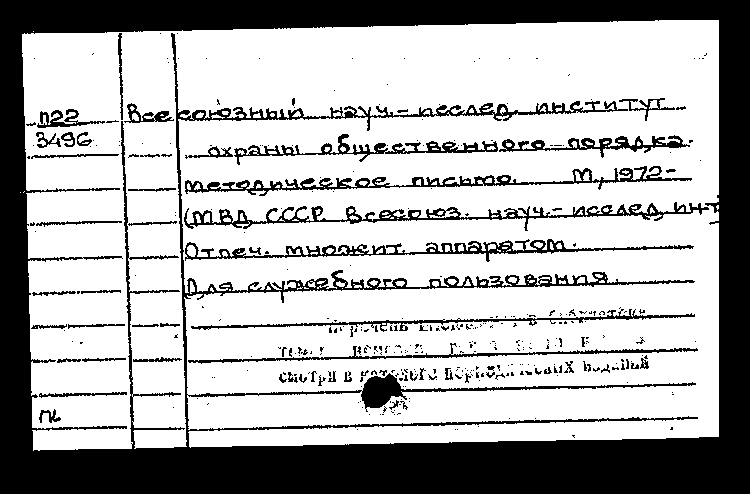 П22 Всесоюзный науч.-исслед. институт
3496 охраны общественного порядка.
Методическое письмо. М., 1972-
(МВД СССР. Всесоюз. науч.-исслед. ин-т
Отпеч. множит. аппаратом.
Для служебного пользования.
Перечень в библиотеке
смотри в каталоге периодических изданий